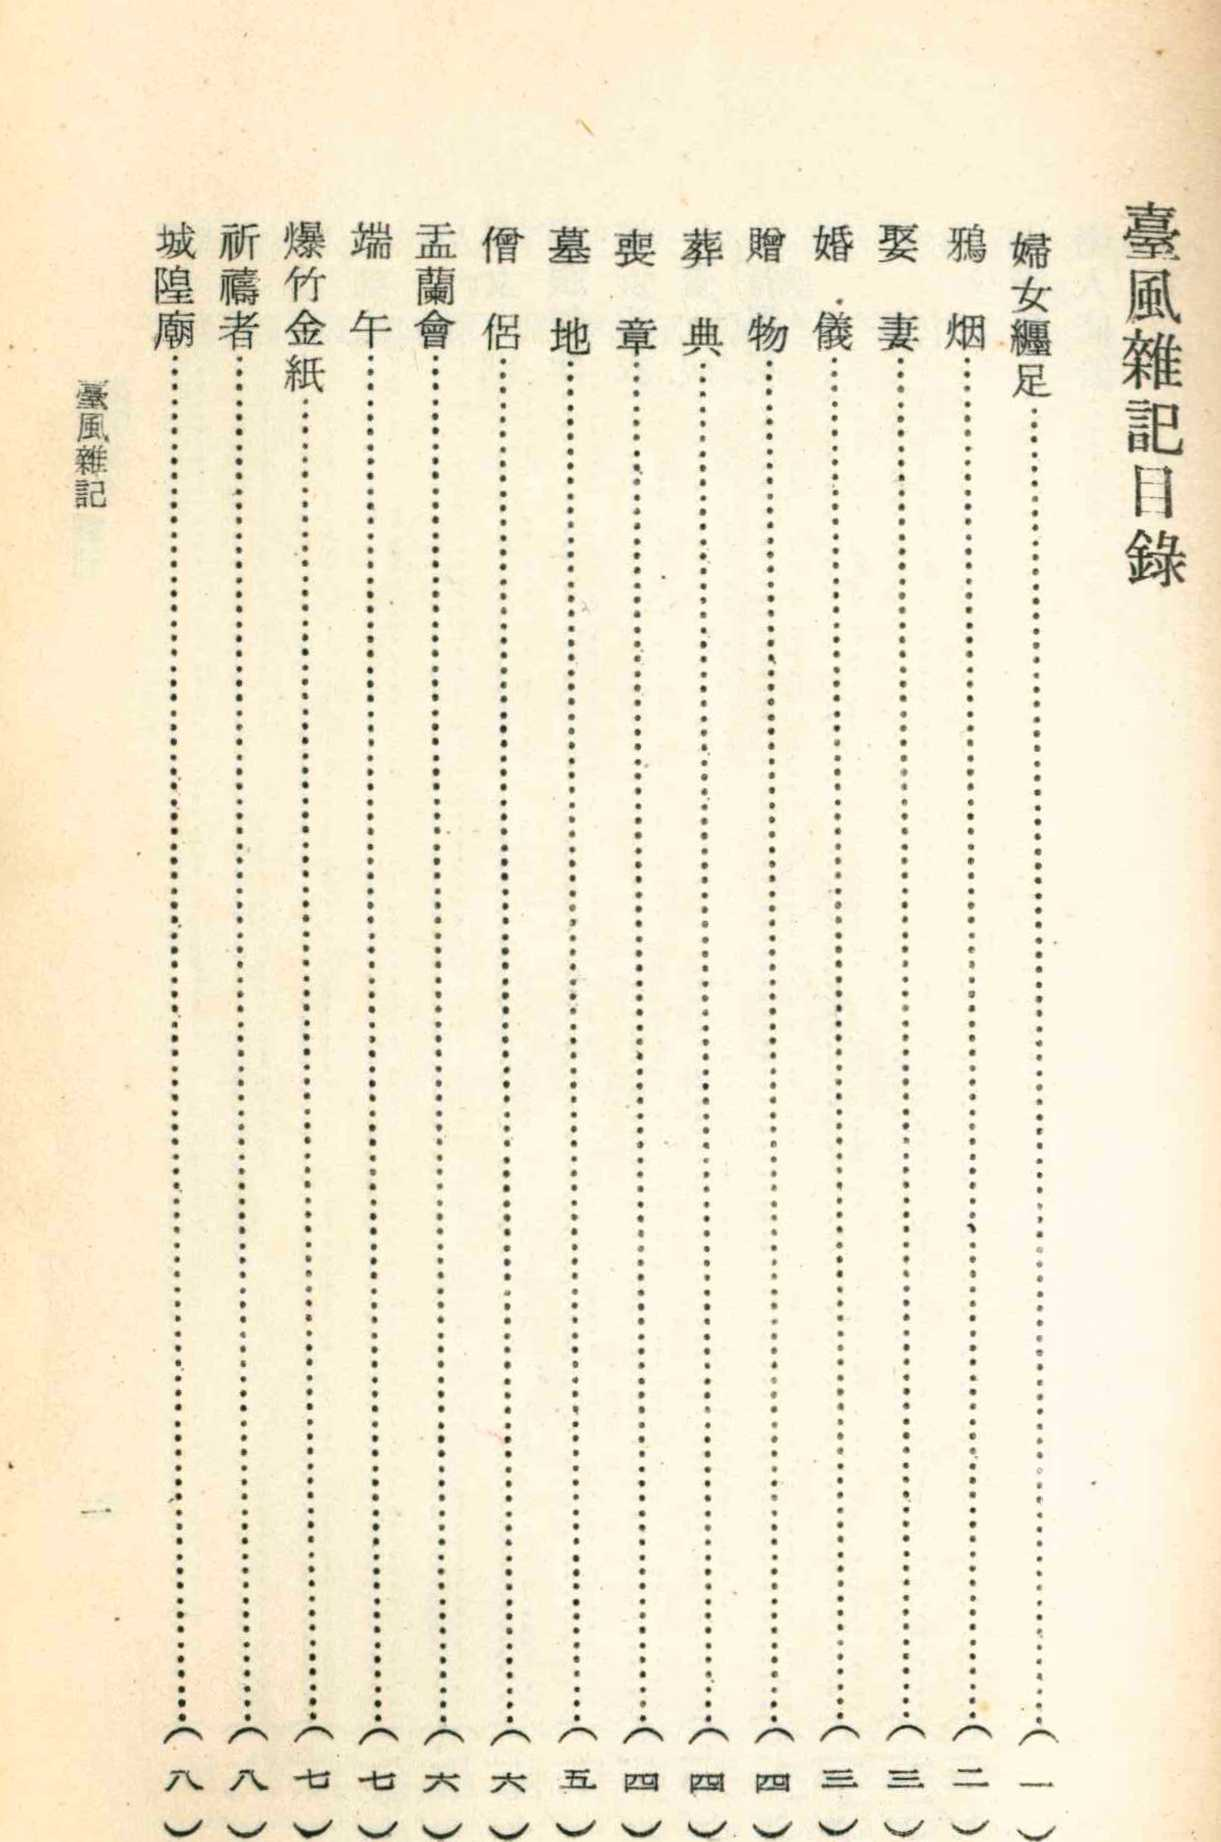 臺風雜記目錄
婦女纏足……(一)
鴉烟……(二)
娶妻……(三)
婚儀……(三)
贈物……(四)
葬典……(四)
喪章……(四)
墓地……(五)
僧侶……(六)
盂蘭會……(六)
端午……(七)
爆竹金紙……(七)
祈禱者……(八)
城隍廟……(八)
臺風雜記
一